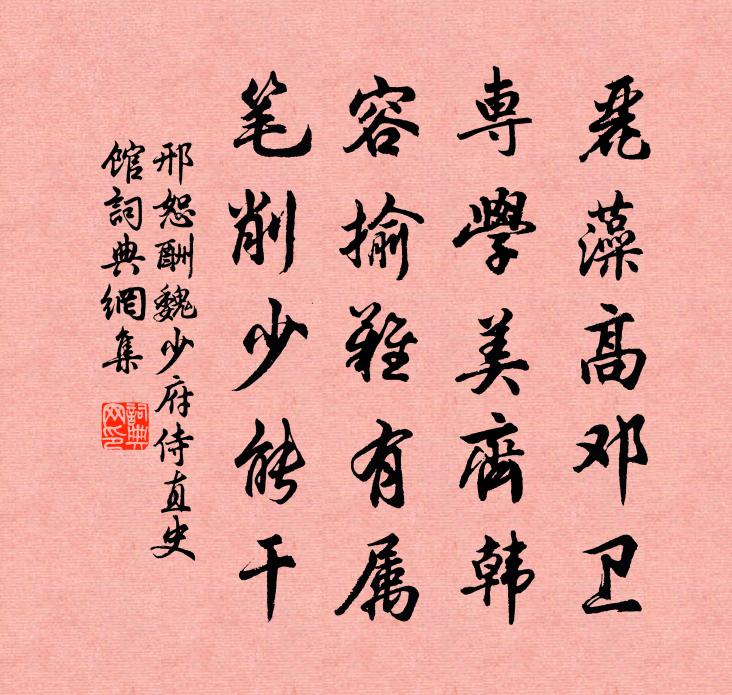 麗藻高邓卫
専學美齊韩
容揄難有属
笔削少能干
邢恕酬魏少府侍直史
馆詞典網集
詞典网印